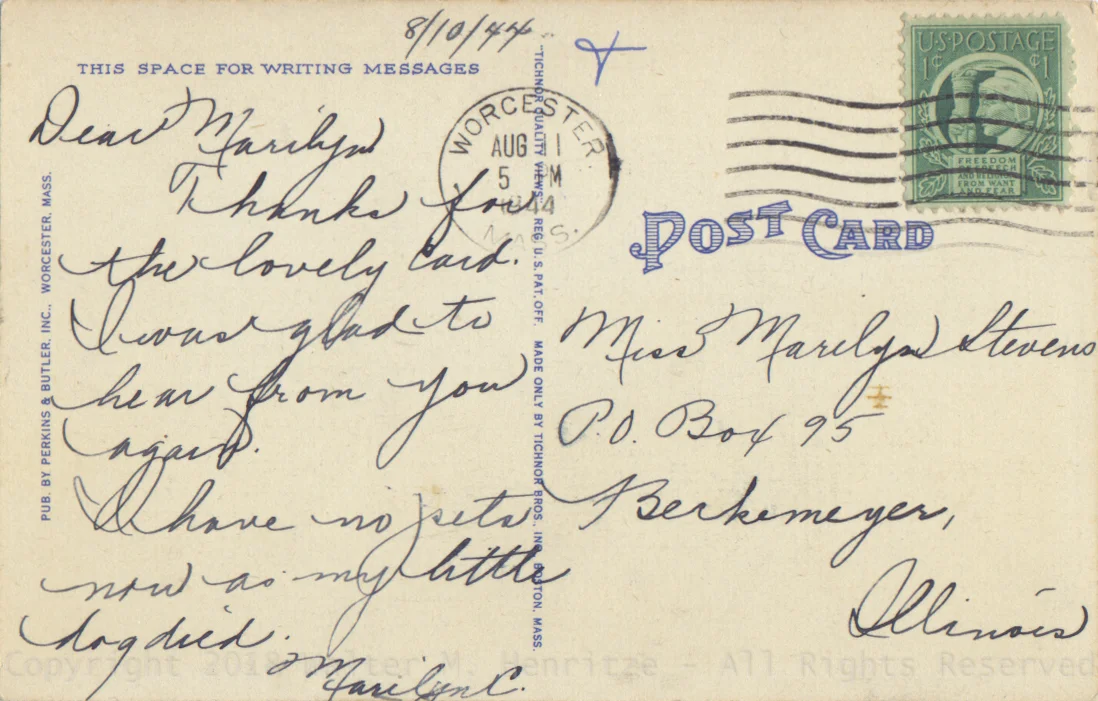 8/10/44
THIS SPACE FOR WRITING MESSAGES
Dear Marilyn
Thanks for
the lovely card.
I was glad to
hear from you
again.
I have no pets
now as my little
dog died.
Marilyn C.
PUB. BY PERKINS & BUTLER, INC., WORCESTER, MASS.
"TICHNOR QUALITY VIEWS," REG. U.S. PAT. OFF. MADE ONLY BY TICHNOR BROS., INC., BOSTON, MASS.
WORCESTER
AUG 11
5 PM
1944
MASS.
U·S·POSTAGE
1¢ ¢1
FREEDOM
OF SPEECH
AND RELIGION
FROM WANT
AND FEAR
POST CARD
Miss Marilyn Stevens
P.O. Box 95
Berkemeyer,
Illinois
Copyright 2018 Walter M. Henritze - All Rights Reserved